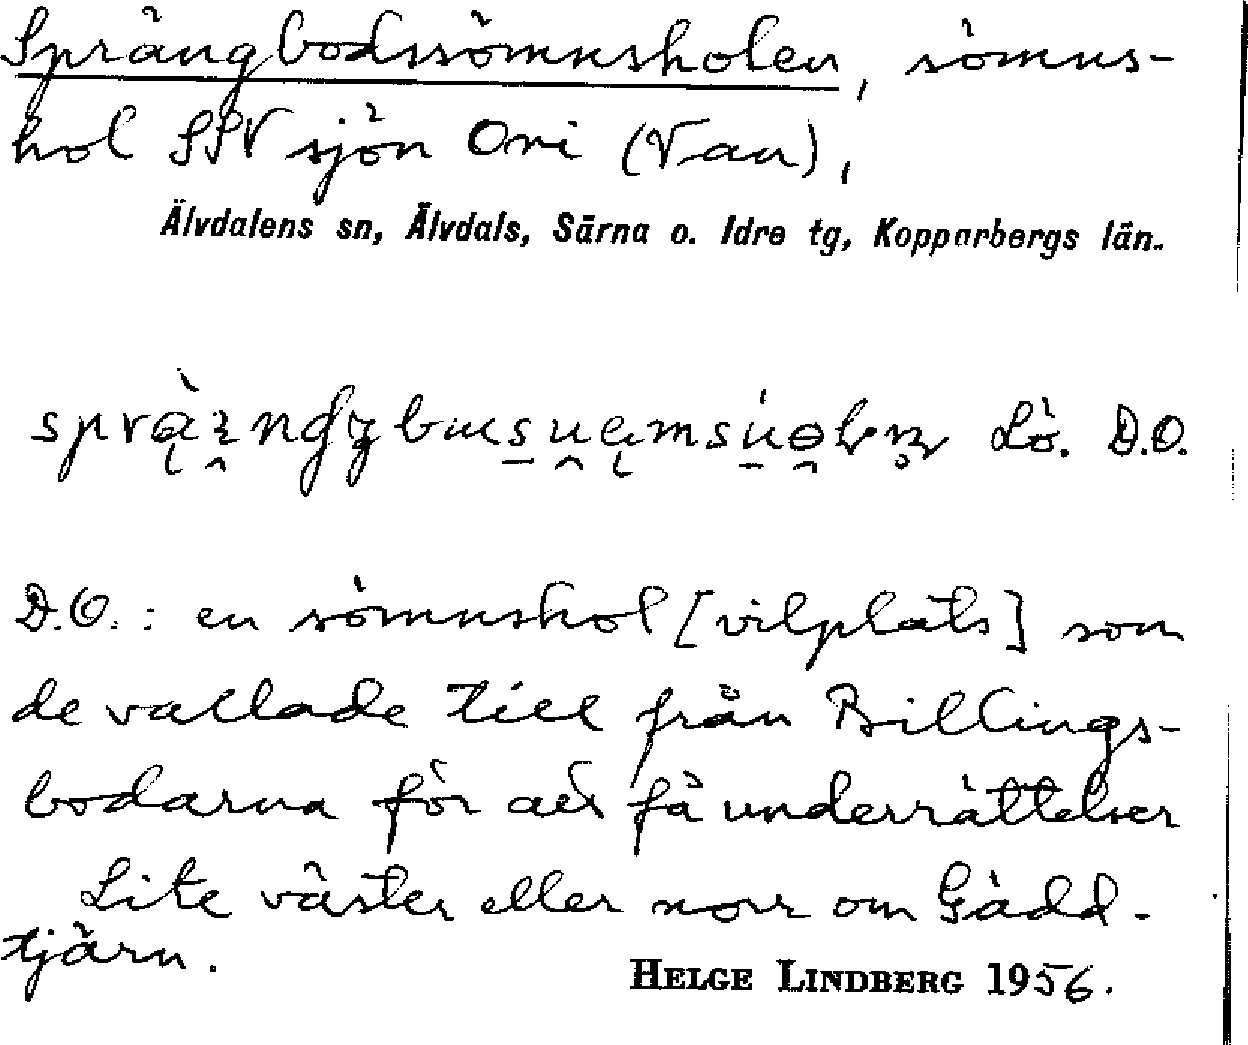 Sprängbodssömnsholen, sömns-
hol SSV sjön Ovi (Van),
Älvdalens sn, Älvdals, Särna o. Idre tg, Kopparbergs län.
Lö. D.O.
D.O. : en sömnshol [vilplats] som
de vallade till från Billings-
bodarna för att få underrättelser
Lite väster eller norr om Gädd-
tjärn.
HELGE LINDBERG 1956.